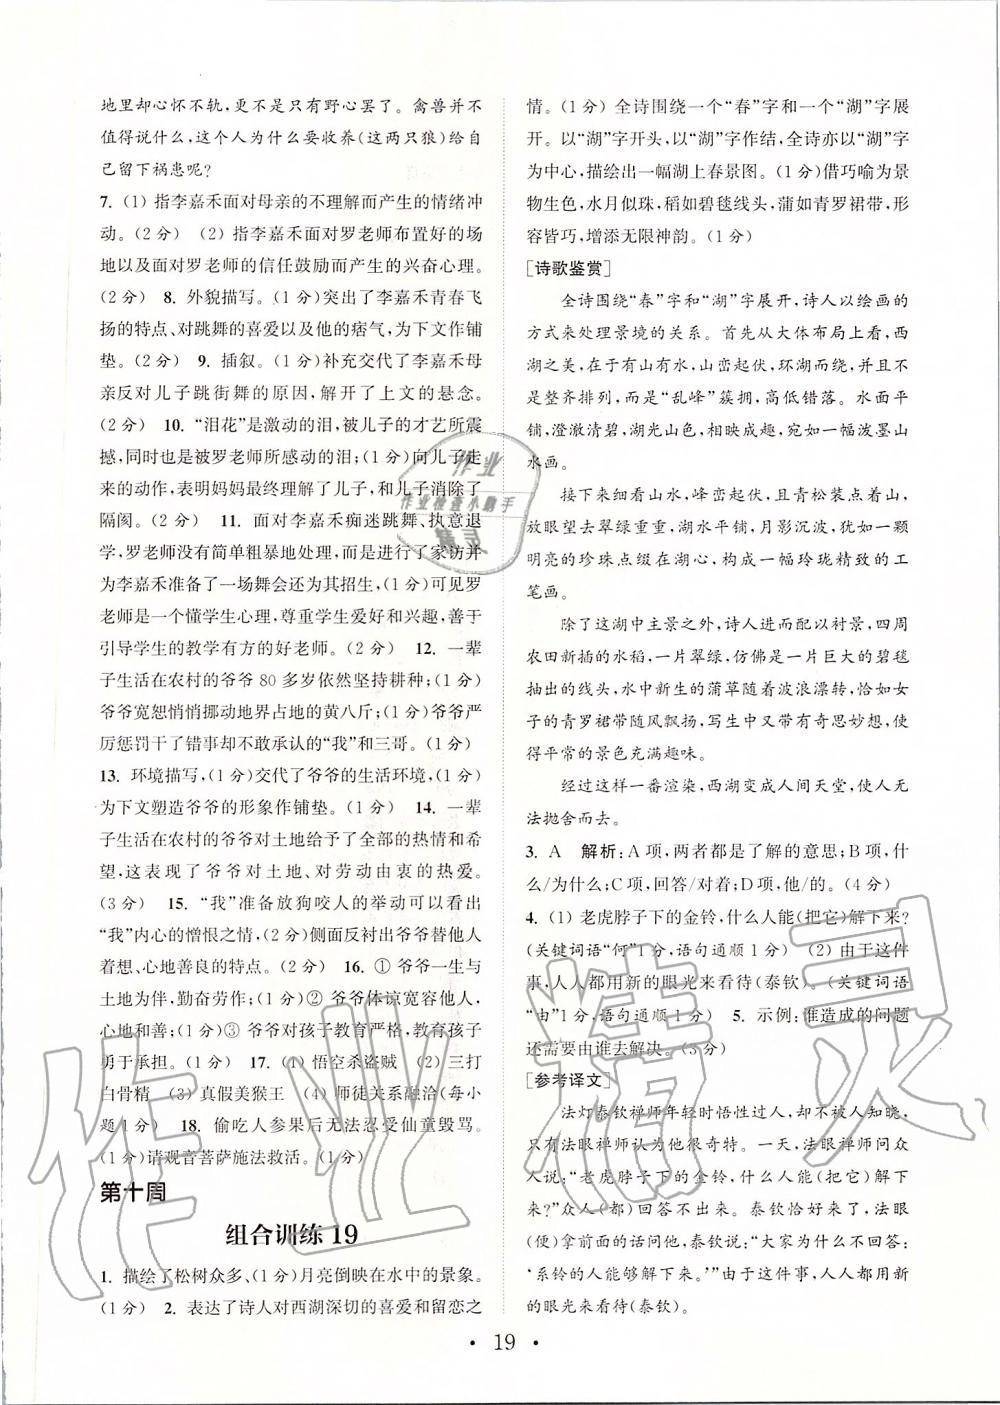 地里却心怀不轨,更不是只有野心罢了。禽兽并不
值得说什么,这个人为什么要收养(这两只狼)给自
己留下祸患呢?
7. (1) 指李嘉禾面对母亲的不理解而产生的情绪冲
动。(2分) (2) 指李嘉禾面对罗老师布置好的场
地以及面对罗老师的信任鼓励而产生的兴奋心理。
(2分) 8. 外貌描写。(1分)突出了李嘉禾青春飞
扬的特点、对跳舞的喜爱以及他的痞气,为下文作铺
垫。(2分) 9. 插叙。(1分)补充交代了李嘉禾母
亲反对儿子跳街舞的原因,解开了上文的悬念。
(2分) 10. “泪花”是激动的泪,被儿子的才艺所震
撼,同时也是被罗老师所感动的泪;(1分)向儿子走
来的动作,表明妈妈最终理解了儿子,和儿子消除了
隔阂。(2分) 11. 面对李嘉禾痴迷跳舞、执意退
学,罗老师没有简单粗暴地处理,而是进行了家访并
为李嘉禾准备了一场舞会还为其招生,(1分)可见罗
老师是一个懂学生心理,尊重学生爱好和兴趣,善于
引导学生的教学有方的好老师。(2分) 12. 一辈
子生活在农村的爷爷80多岁依然坚持耕种;(1分)
爷爷宽恕悄悄挪动地界占地的黄八斤;(1分)爷爷严
厉惩罚干了错事却不敢承认的“我”和三哥。(1分)
13. 环境描写,(1分)交代了爷爷的生活环境,(1分)
为下文塑造爷爷的形象作铺垫。(1分) 14. 一辈
子生活在农村的爷爷对土地给予了全部的热情和希
望,这表现了爷爷对土地、对劳动由衷的热爱。
(3分) 15. “我”准备放狗咬人的举动可以看出
“我”内心的憎恨之情,(2分)侧面反衬出爷爷替他人
着想、心地善良的特点。(2分) 16. ① 爷爷一生与
土地为伴,勤奋劳作;(1分)② 爷爷体谅宽容他人,
心地和善;(1分)③ 爷爷对孩子教育严格,教育孩子
勇于承担。(1分) 17. (1) 悟空杀盗贼 (2) 三打
白骨精 (3) 真假美猴王 (4) 师徒关系融洽(每小
题1分) 18. 偷吃人参果后无法忍受仙童毁骂。
(1分)请观音菩萨施法救活。(1分)
第十周
组合训练19
1. 描绘了松树众多、(1分)月亮倒映在水中的景象。
(1分) 2. 表达了诗人对西湖深切的喜爱和留恋之
情。(1分) 全诗围绕一个“春”字和一个“湖”字展
开。以“湖”字开头,以“湖”字作结,全诗亦以“湖”字
为中心,描绘出一幅湖上春景图。(1分)借巧喻为景
物生色,水月似珠,稻如碧毯线头,蒲如青罗裙带,形
容皆巧,增添无限神韵。(1分)
[诗歌鉴赏]
全诗围绕“春”字和“湖”字展开,诗人以绘画的
方式来处理景境的关系。首先从大体布局上看,西
湖之美,在于有山有水,山峦起伏,环湖而绕,但并不
是整齐排列,而是“乱峰”簇拥,高低错落。水面平
铺,澄澈清碧,湖光山色,相映成趣,宛如一幅泼墨山
水画。
接下来细看山水,峰峦起伏,且青松装点着山,
放眼望去翠绿重重,湖水平铺,月影沉波,犹如一颗
明亮的珍珠点缀在湖心,构成一幅玲珑精致的工
笔画。
除了这湖中主景之外,诗人进而配以衬景,四周
农田新插的水稻,一片翠绿,仿佛是一片巨大的碧毯
抽出的线头,水中新生的蒲草随着波浪漂转,恰如女
子的青罗裙带随风飘扬,写生中又带有奇思妙想,使
得平常的景色充满趣味。
经过这样一番渲染,西湖变成人间天堂,使人无
法抛舍而去。
3. A 解析:A项,两者都是了解的意思;B项,什
么/为什么;C项,回答/对着;D项,他/的。(4分)
4. (1) 老虎脖子下的金铃,什么人能(把它)解下来?
(关键词语“何”1分,语句通顺1分) (2) 由于这件
事,人人都用新的眼光来看待(泰钦)。(关键词语
“由”1分,语句通顺1分) 5. 示例:谁造成的问题
还需要由谁去解决。(3分)
[参考译文]
法灯泰钦禅师年轻时悟性过人,却不被人知晓,
只有法眼禅师认为他很奇特。一天,法眼禅师问众
人说:“老虎脖子下的金铃,什么人能(把它)解下
来?”众人(都)回答不出来。泰钦恰好来了,法眼
(便)拿之前的话问他,泰钦说:“大家为什么不回答:
‘系铃的人能够解下来。’”由于这件事,人人都用新
的眼光来看待(泰钦)。
• 19 •
作业
作业检查小助手
精灵
作业精灵